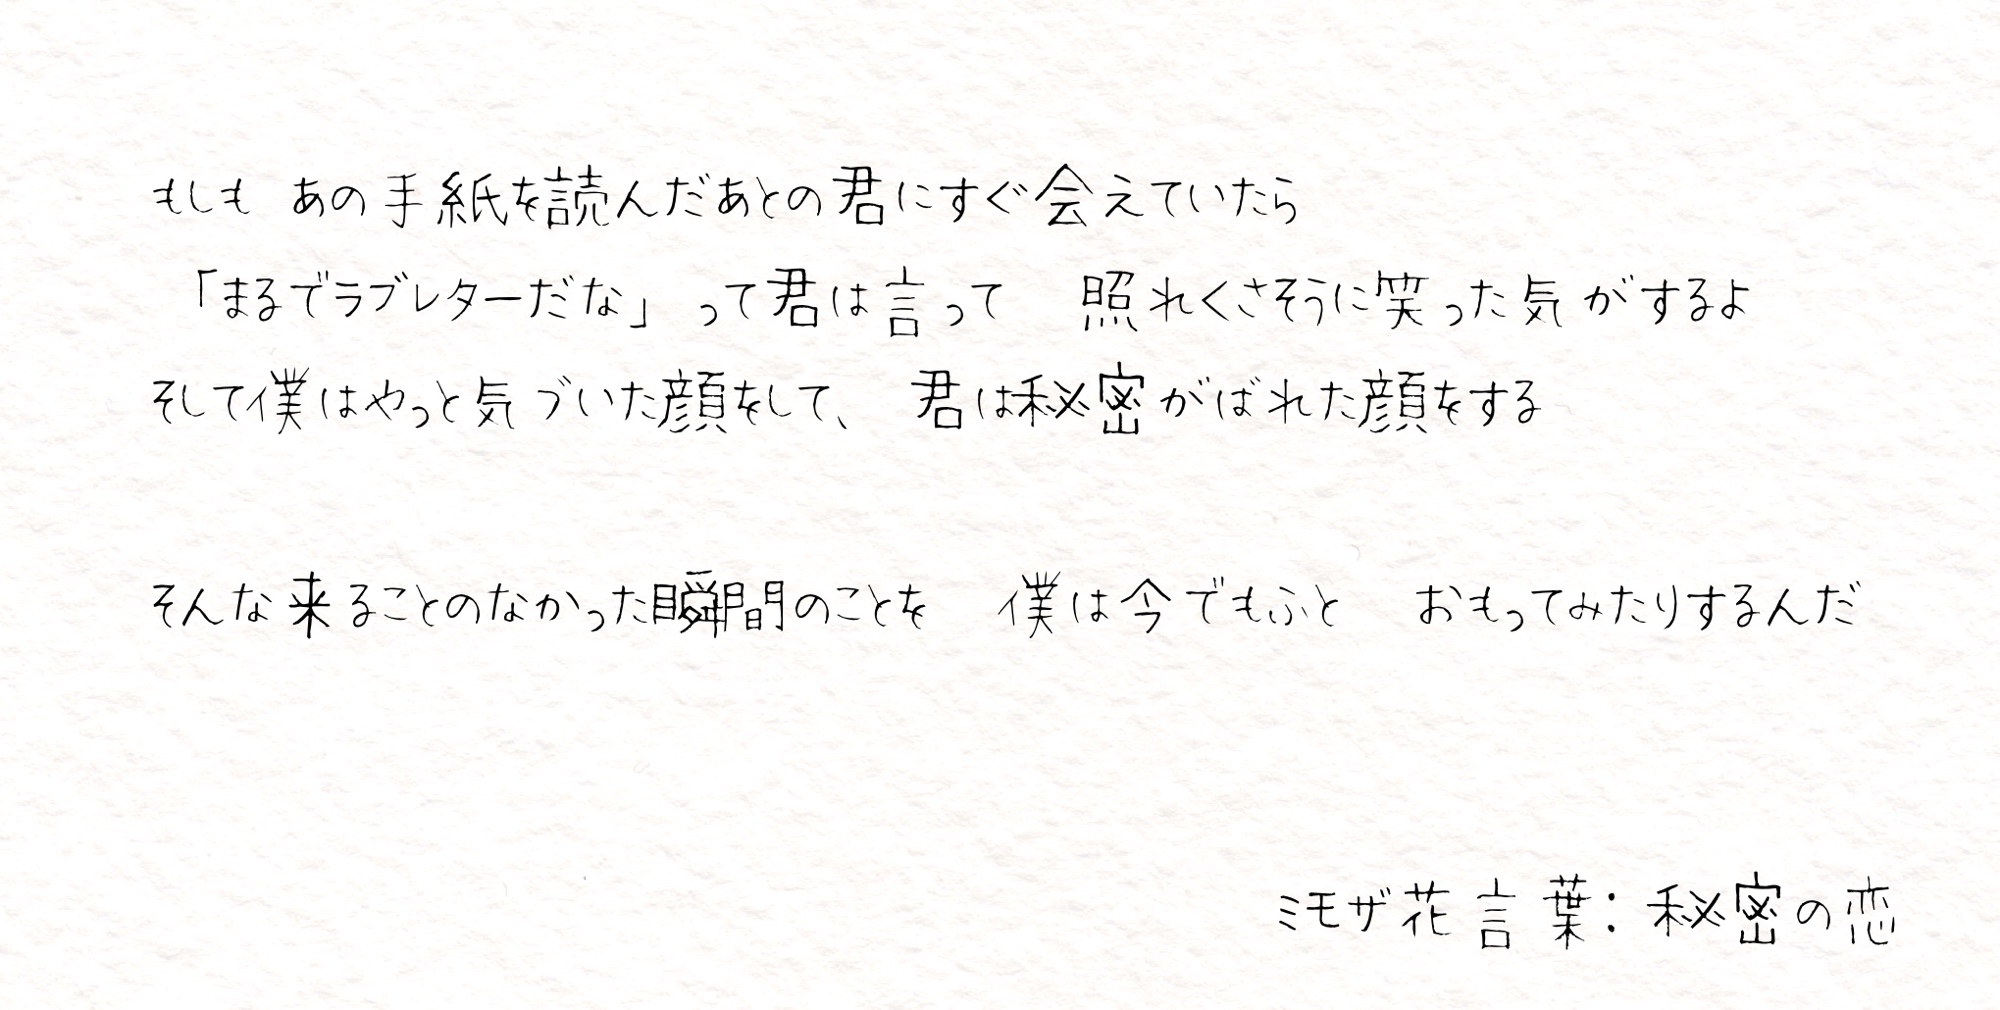 もしも あの手紙を読んだあとの君にすぐ会えていたら
「まるでラブレターだな」って君は言って　照れくさそうに笑った気がするよ
そして僕はやっと気づいた顔をして、　君は秘密がばれた顔をする
そんな来ることのなかった瞬間のことを　僕は今でもふと　おもってみたりするんだ
ミモザ花言葉：秘密の恋